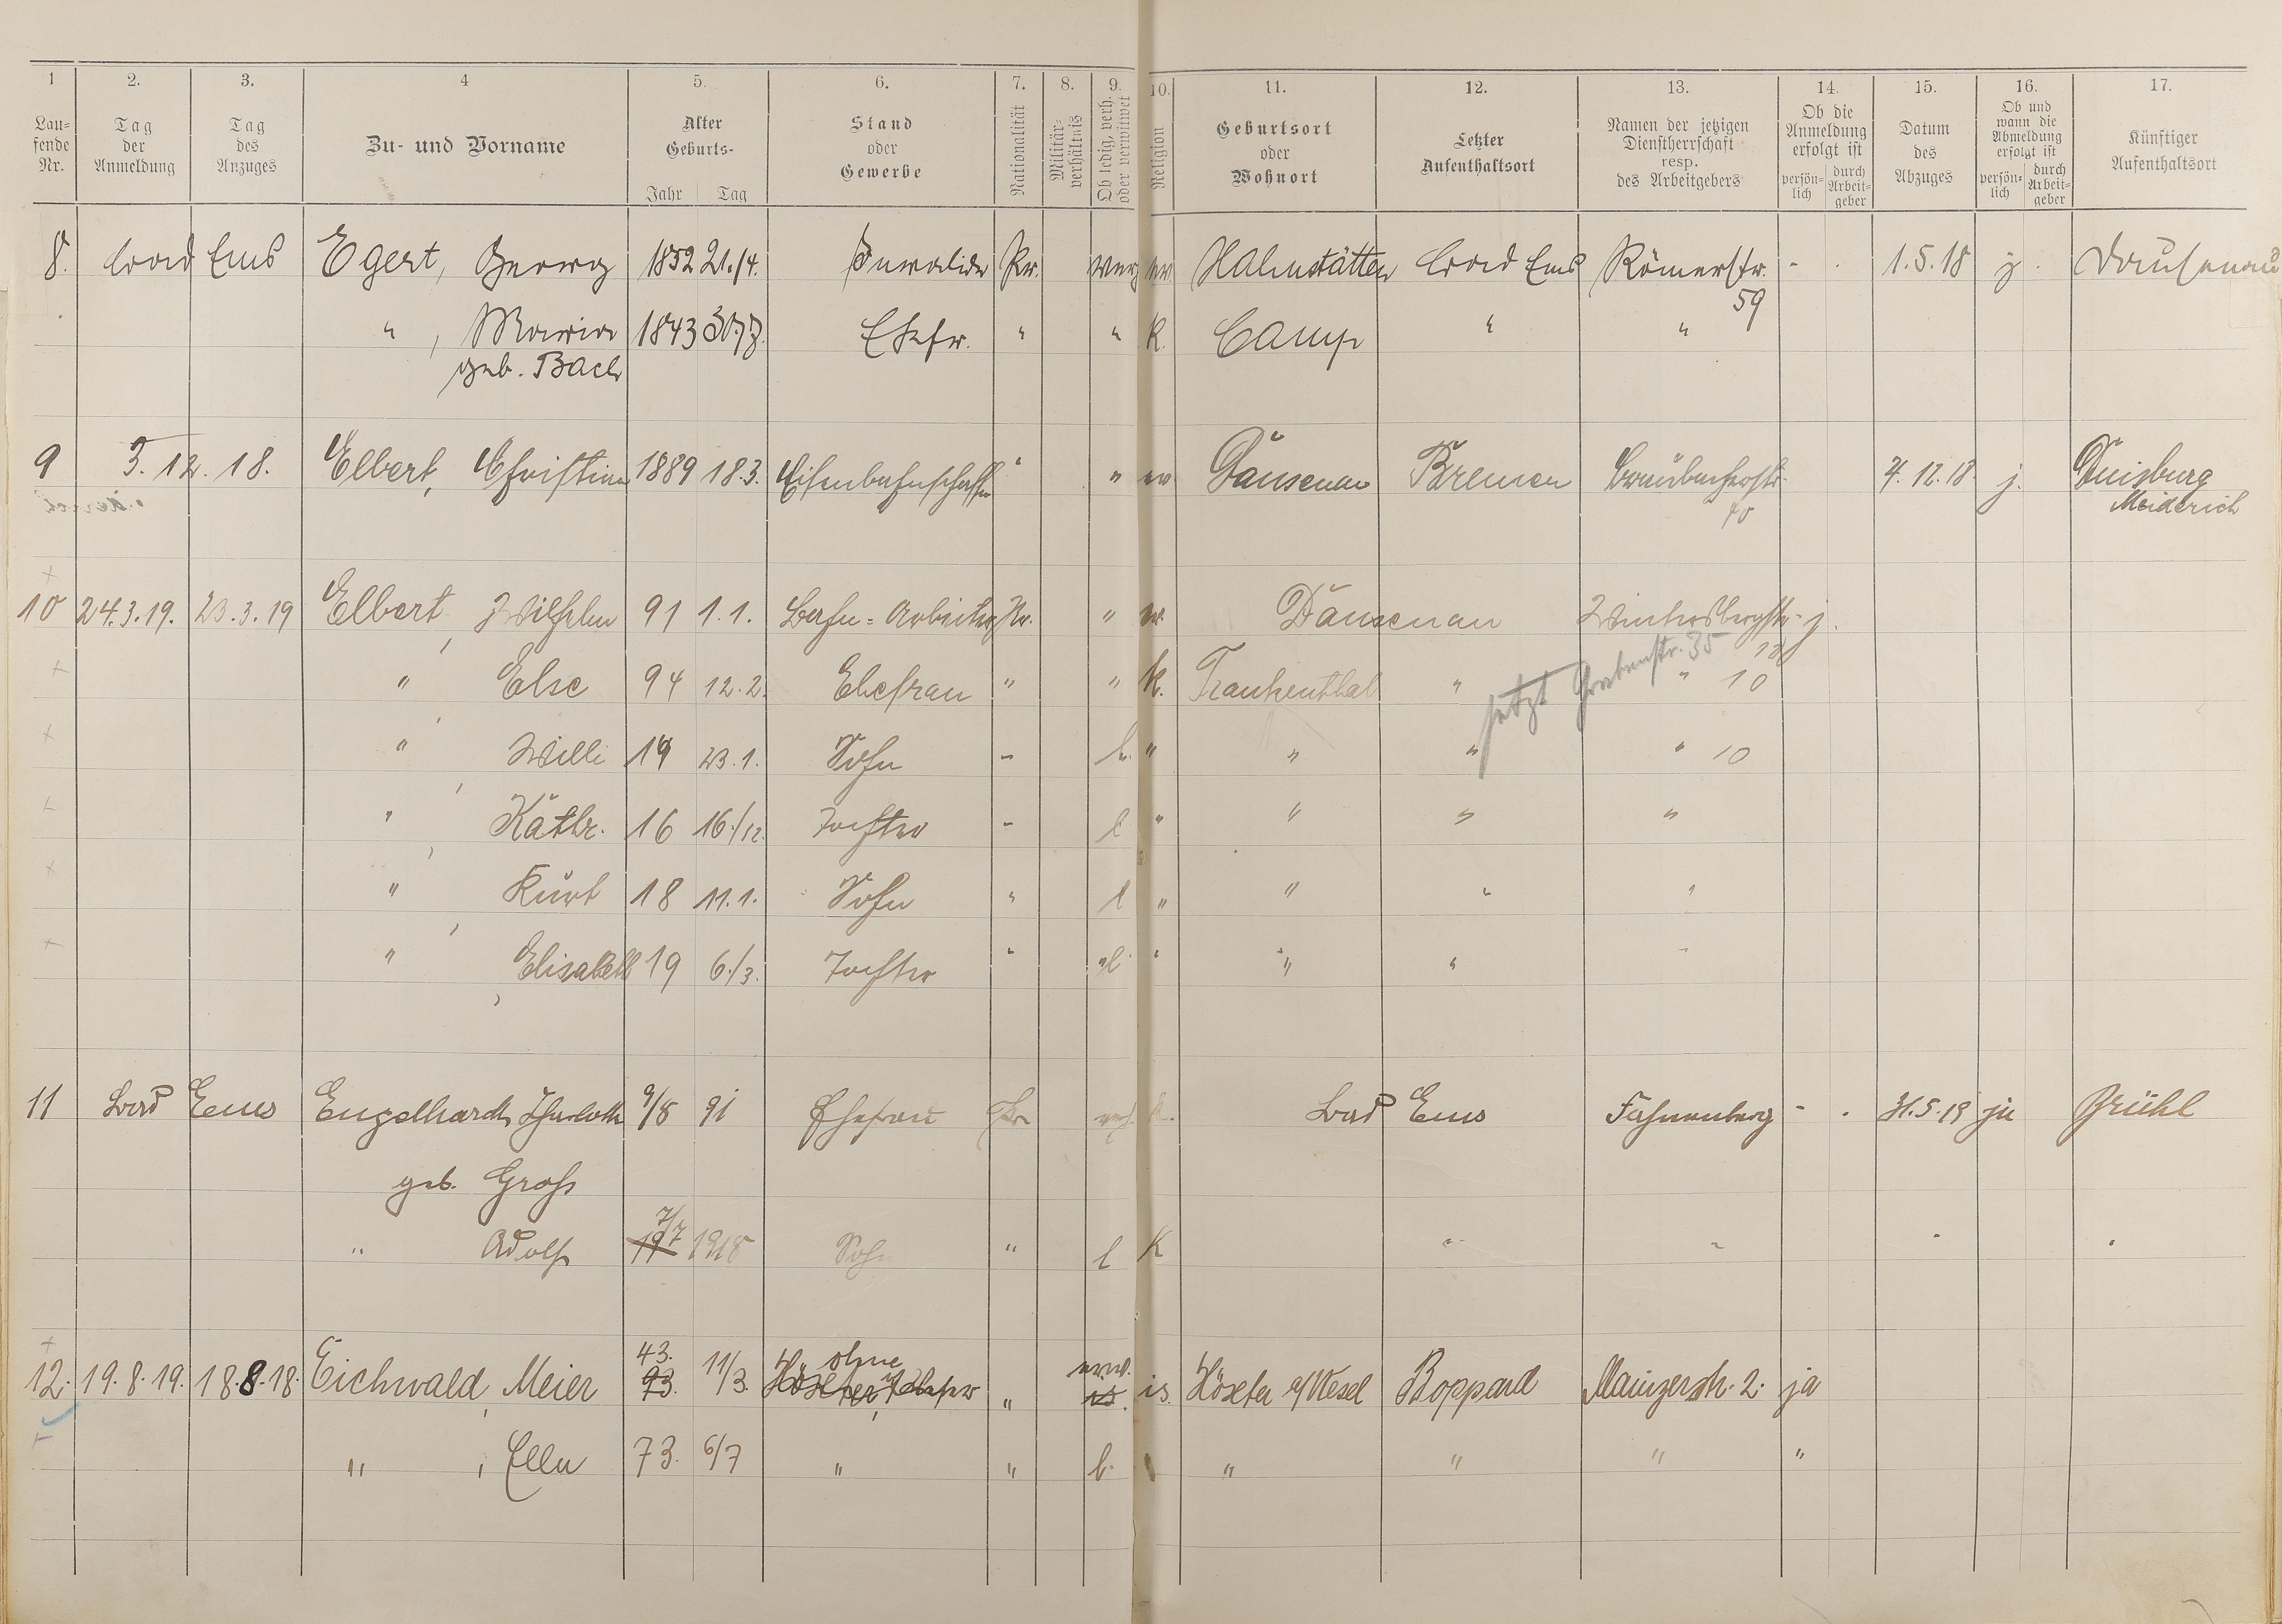 1 2. 3. 4 5. 6. 7. 8. 9. 10. 11. 12. 13. 14. 15. 16. 17.
Lau-
fende
Nr.
Tag
der
Anmeldung
Tag
des
Anzuges
Zu- und Vorname
Alter
Geburts-
Jahr Tag
Stand
oder
Gewerbe
Nationalität
Militär-
verhältnis
Ob ledig, verh.
oder verwitwet
Religion
Geburtsort
oder
Wohnort
Letzter
Aufenthaltsort
Namen der jetzigen
Dienstherrschaft
resp.
des Arbeitgebers
Ob die
Anmeldung
erfolgt ist
persön-
lich
durch
Arbeit-
geber
Datum
des
Abzuges
Ob und
wann die
Abmeldung
erfolgt ist
persön-
lich
durch
Arbeit-
geber
Künftiger
Aufenthaltsort
8. Bad Ems Egert, Georg 1852 21./4. Invalide Pr. ev. Hahnstätten Bad Ems Römerstr. - . 1.5.18 j. Dausenau
59
" , Maria 1843 Ehefr. " " k. Camp " "
geb. Bach
9 3.12.18. Elbert, Christian 1889 18.3. Eisenbahnschaffn " " ev Dausenau Bremen Braubacherstr. 7.12.18. j. Duisburg
Meiderich
10 24.3.19. 23.3.19 Elbert, Wilhelm 91 1.1. Bahn=Arbeiter Pr. " ev. Dausenau Wintersbergstr. j.
jetzt Grabenstr. 35
" Else 94 12.2. Ehefrau " " k. Frankenthal " " 10
" , Willi 14 23.1. Sohn - l. " " " " 10
" , Käthr. 16 16./12. Tochter - l " " " "
" , Kurt 18 11.1. Sohn " l " " " "
" , Elisabeth 19 6./3. Tochter " l " " "
11 Bad Ems Engelhardt, Charlotte 9/8 91 Ehefrau Pr verh. k. Bad Ems Fahnenberg - . 31.5.19 ja Brühl
geb. Groß
" Adolf 7/7 1918 Sohn " l K " " " "
12. 19.8.19. 18.8.18. Eichwald, Meier 43. 93. 11/3. ohne Höxter " verw. is. Höxter a/Wesel Boppard Mainzerstr. 2. ja
" , Ella 73. 6/7 " " l. " " " " "